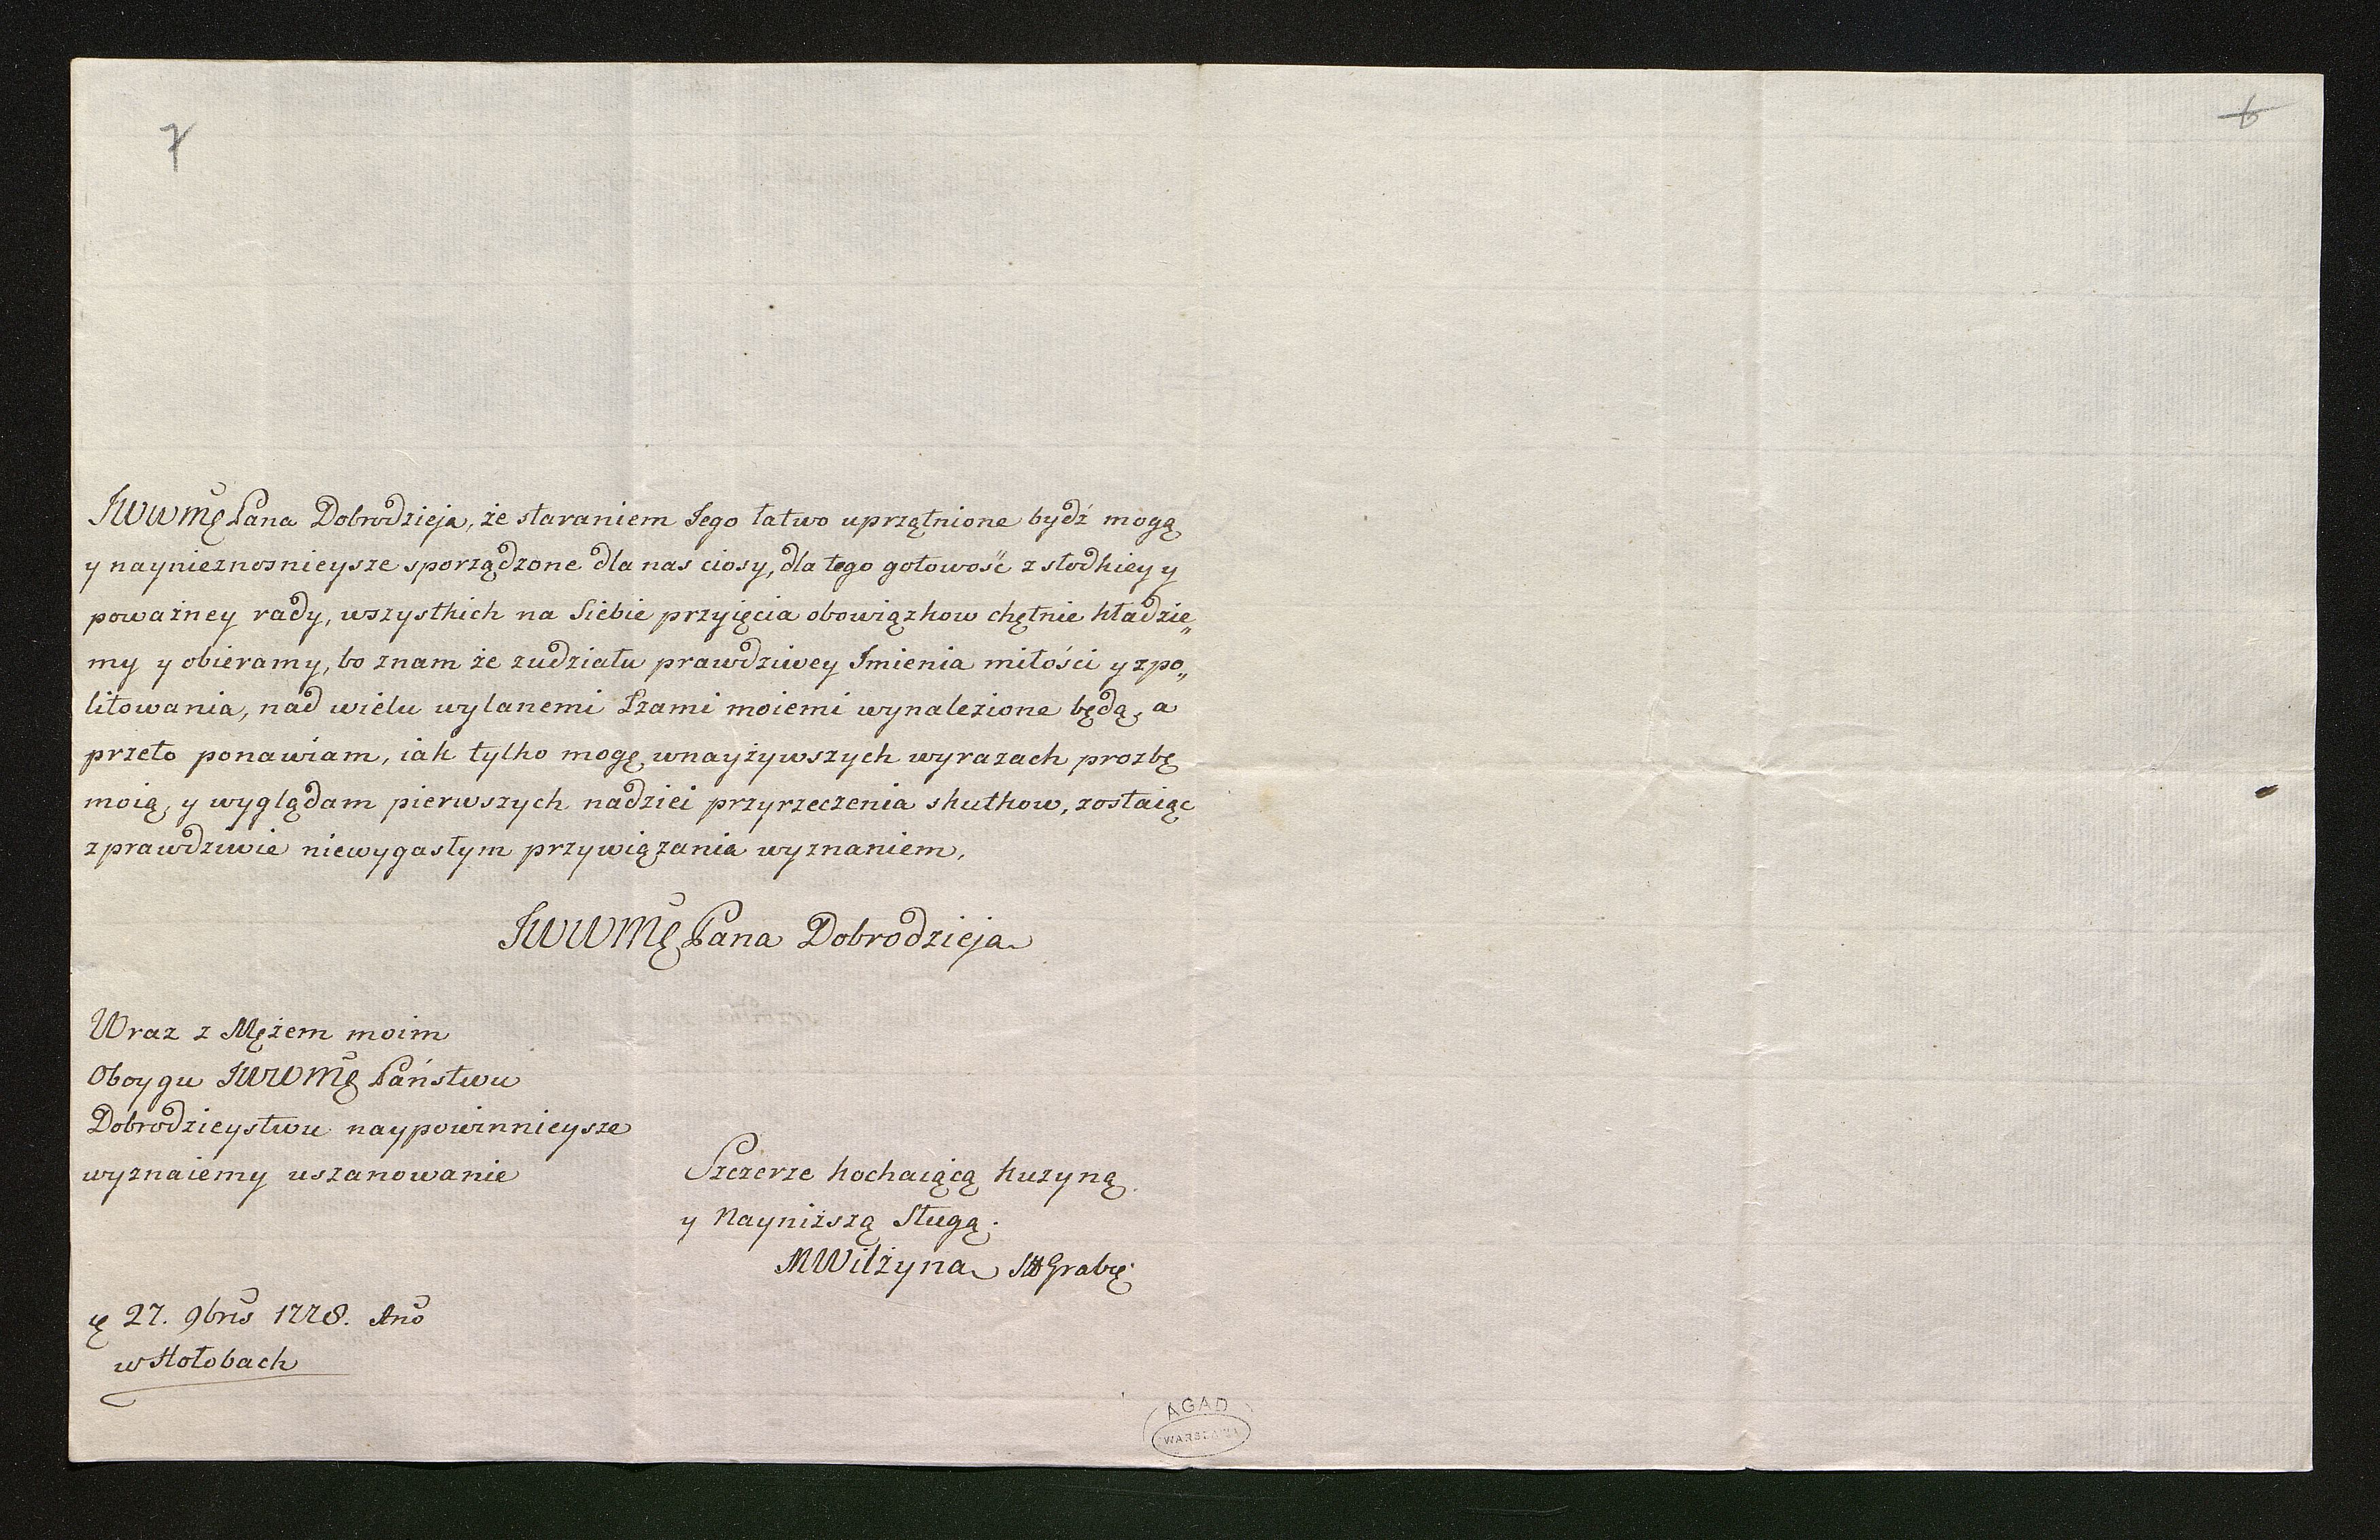 7
6
JWWMę Pana Dobrodzieja, że staraniem Jego łatwo uprzątnione bydź mogą
y naynieznosnieysze sporządzone dla nas ciosy, dla tego gotowość z słodkiey y
poważney rady, wszystkich na Siebie przyięcia obowiązkow chętnie kładzie„
my y obieramy, bo znam że zudziału prawdziwey Imienia miłości y zpo„
litowania, nad wielu wylanemi Łzami moiemi wynalezione będą, a
przeto ponawiam, iak tylko mogę wnayżywszych wyrazach prozbę
moią, y wyglądam pierwszych nadziei przyrzeczenia skutkow, zostaiąc
zprawdziwie niewygasłym przywiązania wyznaniem,
JWWMę Pana Dobrodzieja
Wraz z Mężem moim
Oboygu JWWMę Państwu
Dobrodzieystwu naypowinnieysze
wyznaiemy uszanowanie
Szczerze kochaiącą kuzyną
y Nayniższą Sługą.
MWilżyna Grabę
27. 9bris 1778. Ano
w Hołobach
AGAD
WARSZAWA